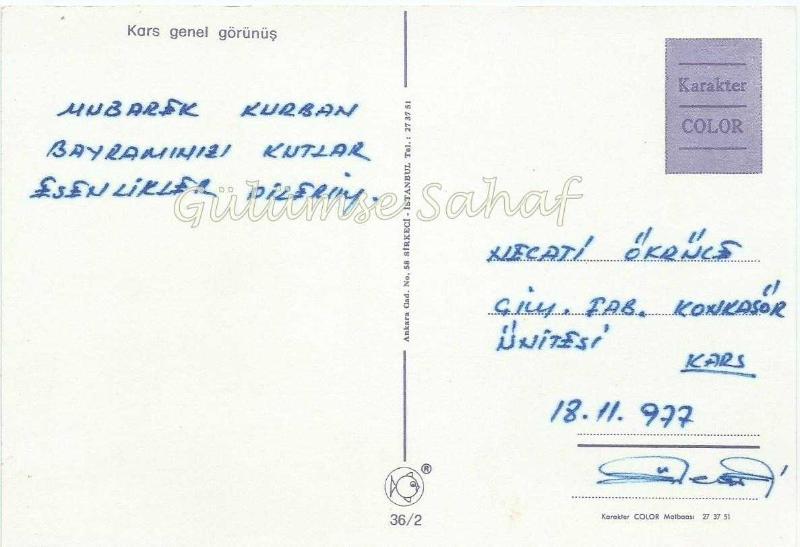 Kars genel görünüş
MUBAREK KURBAN
BAYRAMINIZI KUTLAR
ESENLİKLER DİLERİM.
Gülümse Sahaf
Ankara Cad. No. 58 SİRKECİ - İSTANBUL Tel.: 27 37 51
Karakter
COLOR
NECATİ ÖKRÜCE
ÇİM. FAB. KONKASÖR
ÜNİTESİ
KARS
18.11.977
®
36/2
Karakter COLOR Matbaası 27 37 51